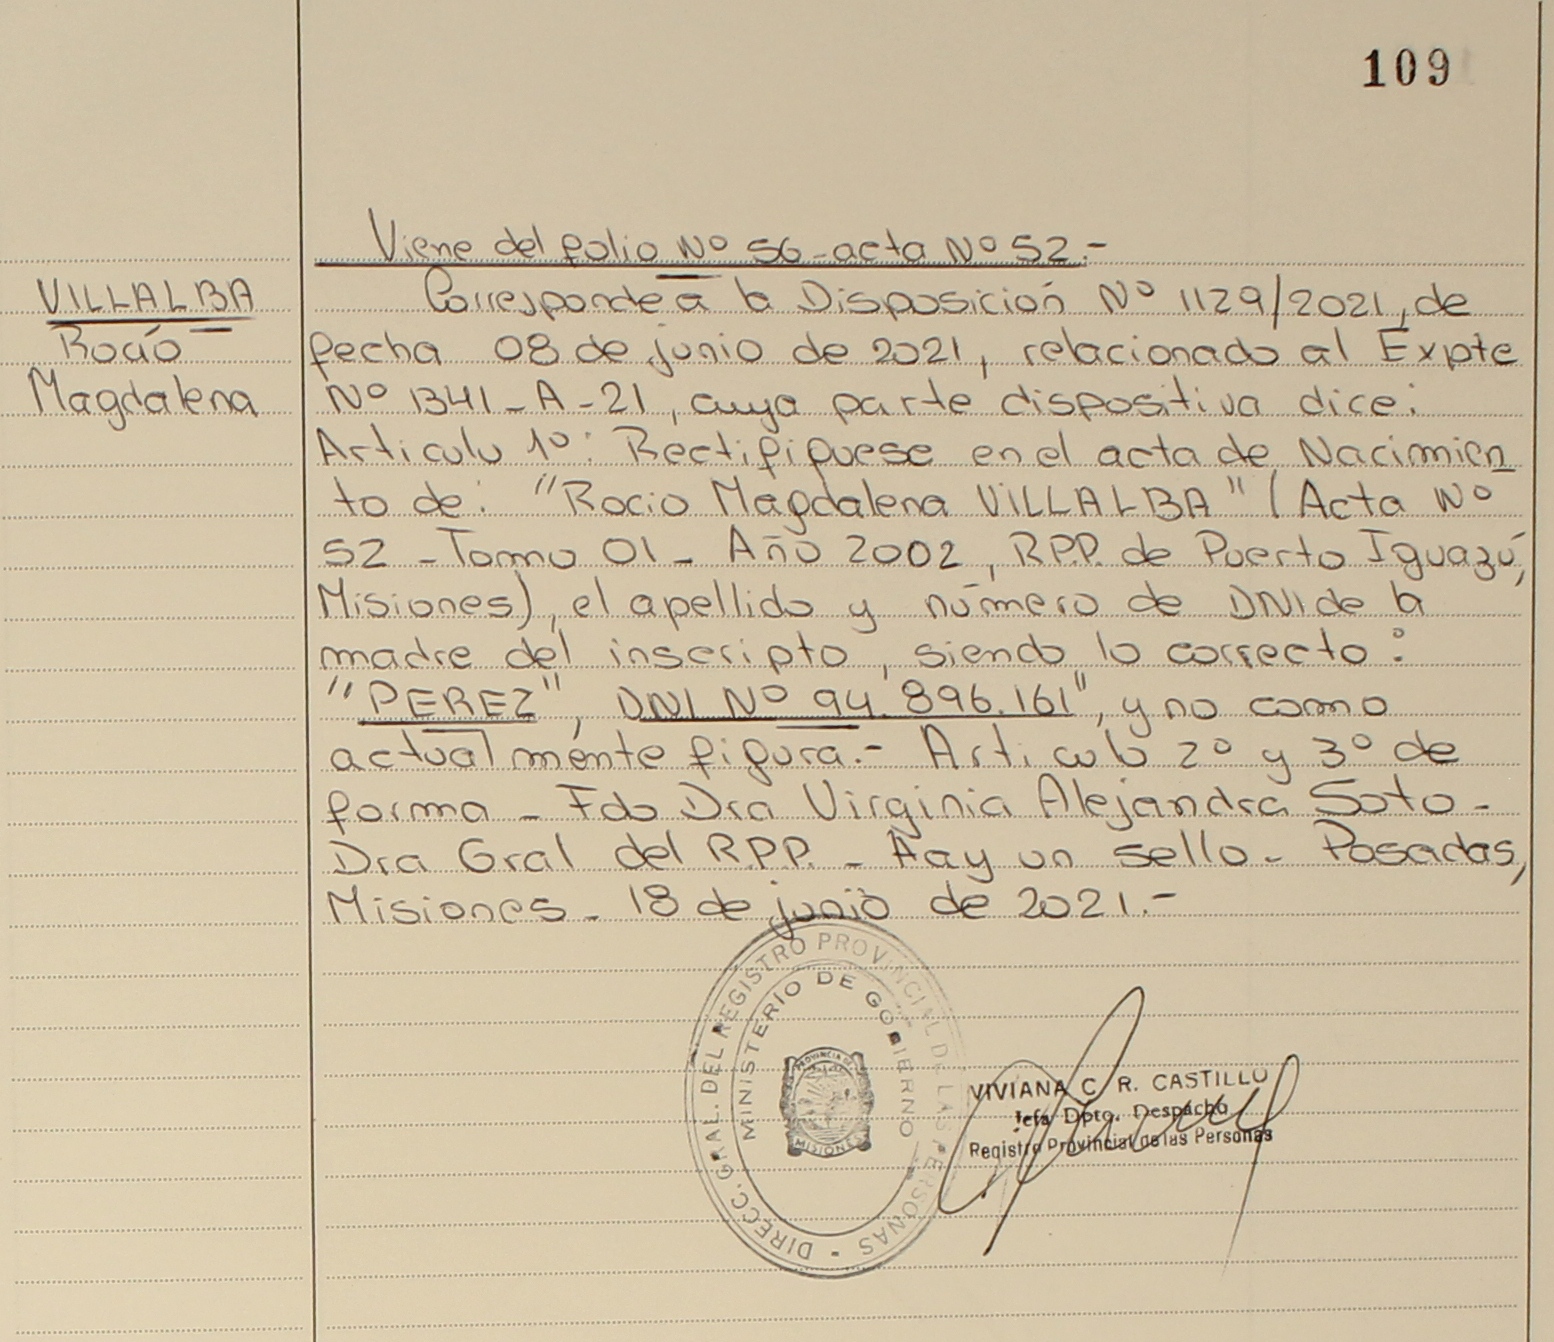 109
Viene del folio Nº 56-acta Nº 52.-
VILLALBA
Rocío
Magdalena
Corresponde a la Disposición Nº 1129/2021, de
fecha 08 de junio de 2021, relacionado al Expte
Nº 1341-A-21, cuya parte dispositiva dice:
Articulo 1º: Rectifiquese en el acta de Nacimien
to de: "Rocio Magdalena VILLALBA" (Acta Nº
52 - Tomo 01 - Año 2002, R.P.P. de Puerto Iguazú,
Misiones), el apellido y número de DNI de la
madre del inscripto, siendo lo correcto:
"PEREZ", DNI Nº 94.896.161", y no como
actualmente figura.- Articulo 2º y 3º de
forma - Fdo Dra Virginia Alejandra Soto-
Dra Gral del R.P.P. - Hay un sello - Posadas,
Misiones - 18 de junio de 2021.-
DIRECC. GRAL. DEL REGISTRO PROVINCIAL DE LAS PERSONAS
MINISTERIO DE GOBIERNO
PROVINCIA DE
MISIONES
VIVIANA C. R. CASTILLO
Jefa Dpto. Despacho
Registro Provincial de las Personas